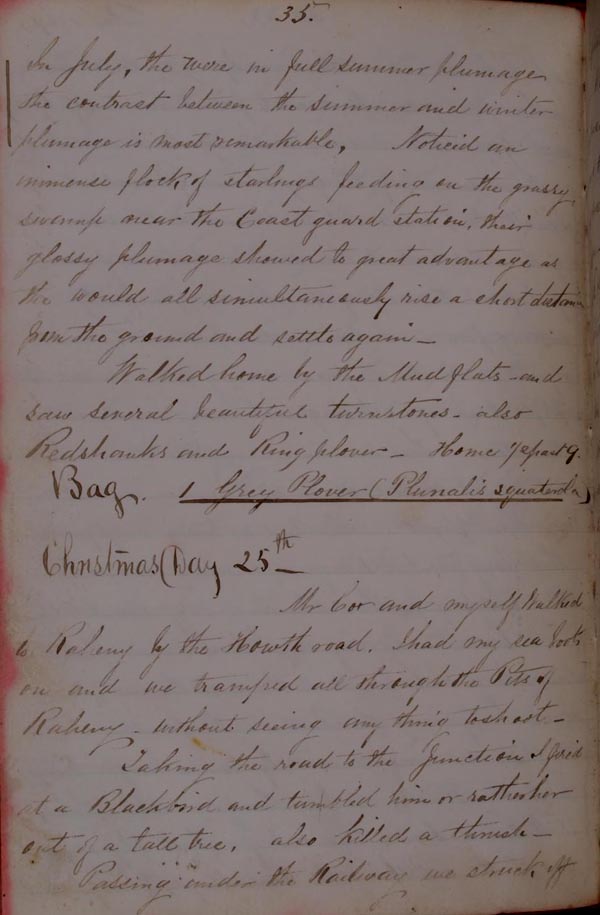 35.
In July, the were in full summer plumage
the contrast between the summer and winter
plumage is most remarkable, Noticed an
immense flock of starlings feeding on the grassy
swamp near the Coast guard station, their
glossy plumage showed to great advantage as
the would all simultaneously rise a short distance
from the ground and settle again —
Walked home by the Mud flats - and
saw several beautiful turnstones - also
Redshanks and Ring plover — Home 1/2 past 9.
Bag. 1 Grey Plover (Pluvialis squaterola)
Christmas Day 25th —
Mr Cox and myself Walked
to Raheny by the Howth road. I had my sea boots
on and we tramped all through the Pits of
Raheny - without seeing any thing to shoot —
Taking the road to the Junction I fired
at a Blackbird and tumbled him or rather her
out of a tall tree, also killed a thrush —
Passing under the Railway we struck off